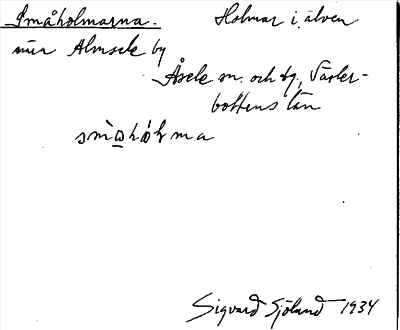 Småholmarna. Holmar i älven
nära Almsele by
Åsele sn. och tg., Väster-
bottens län
Sigvard Sjölund 1934